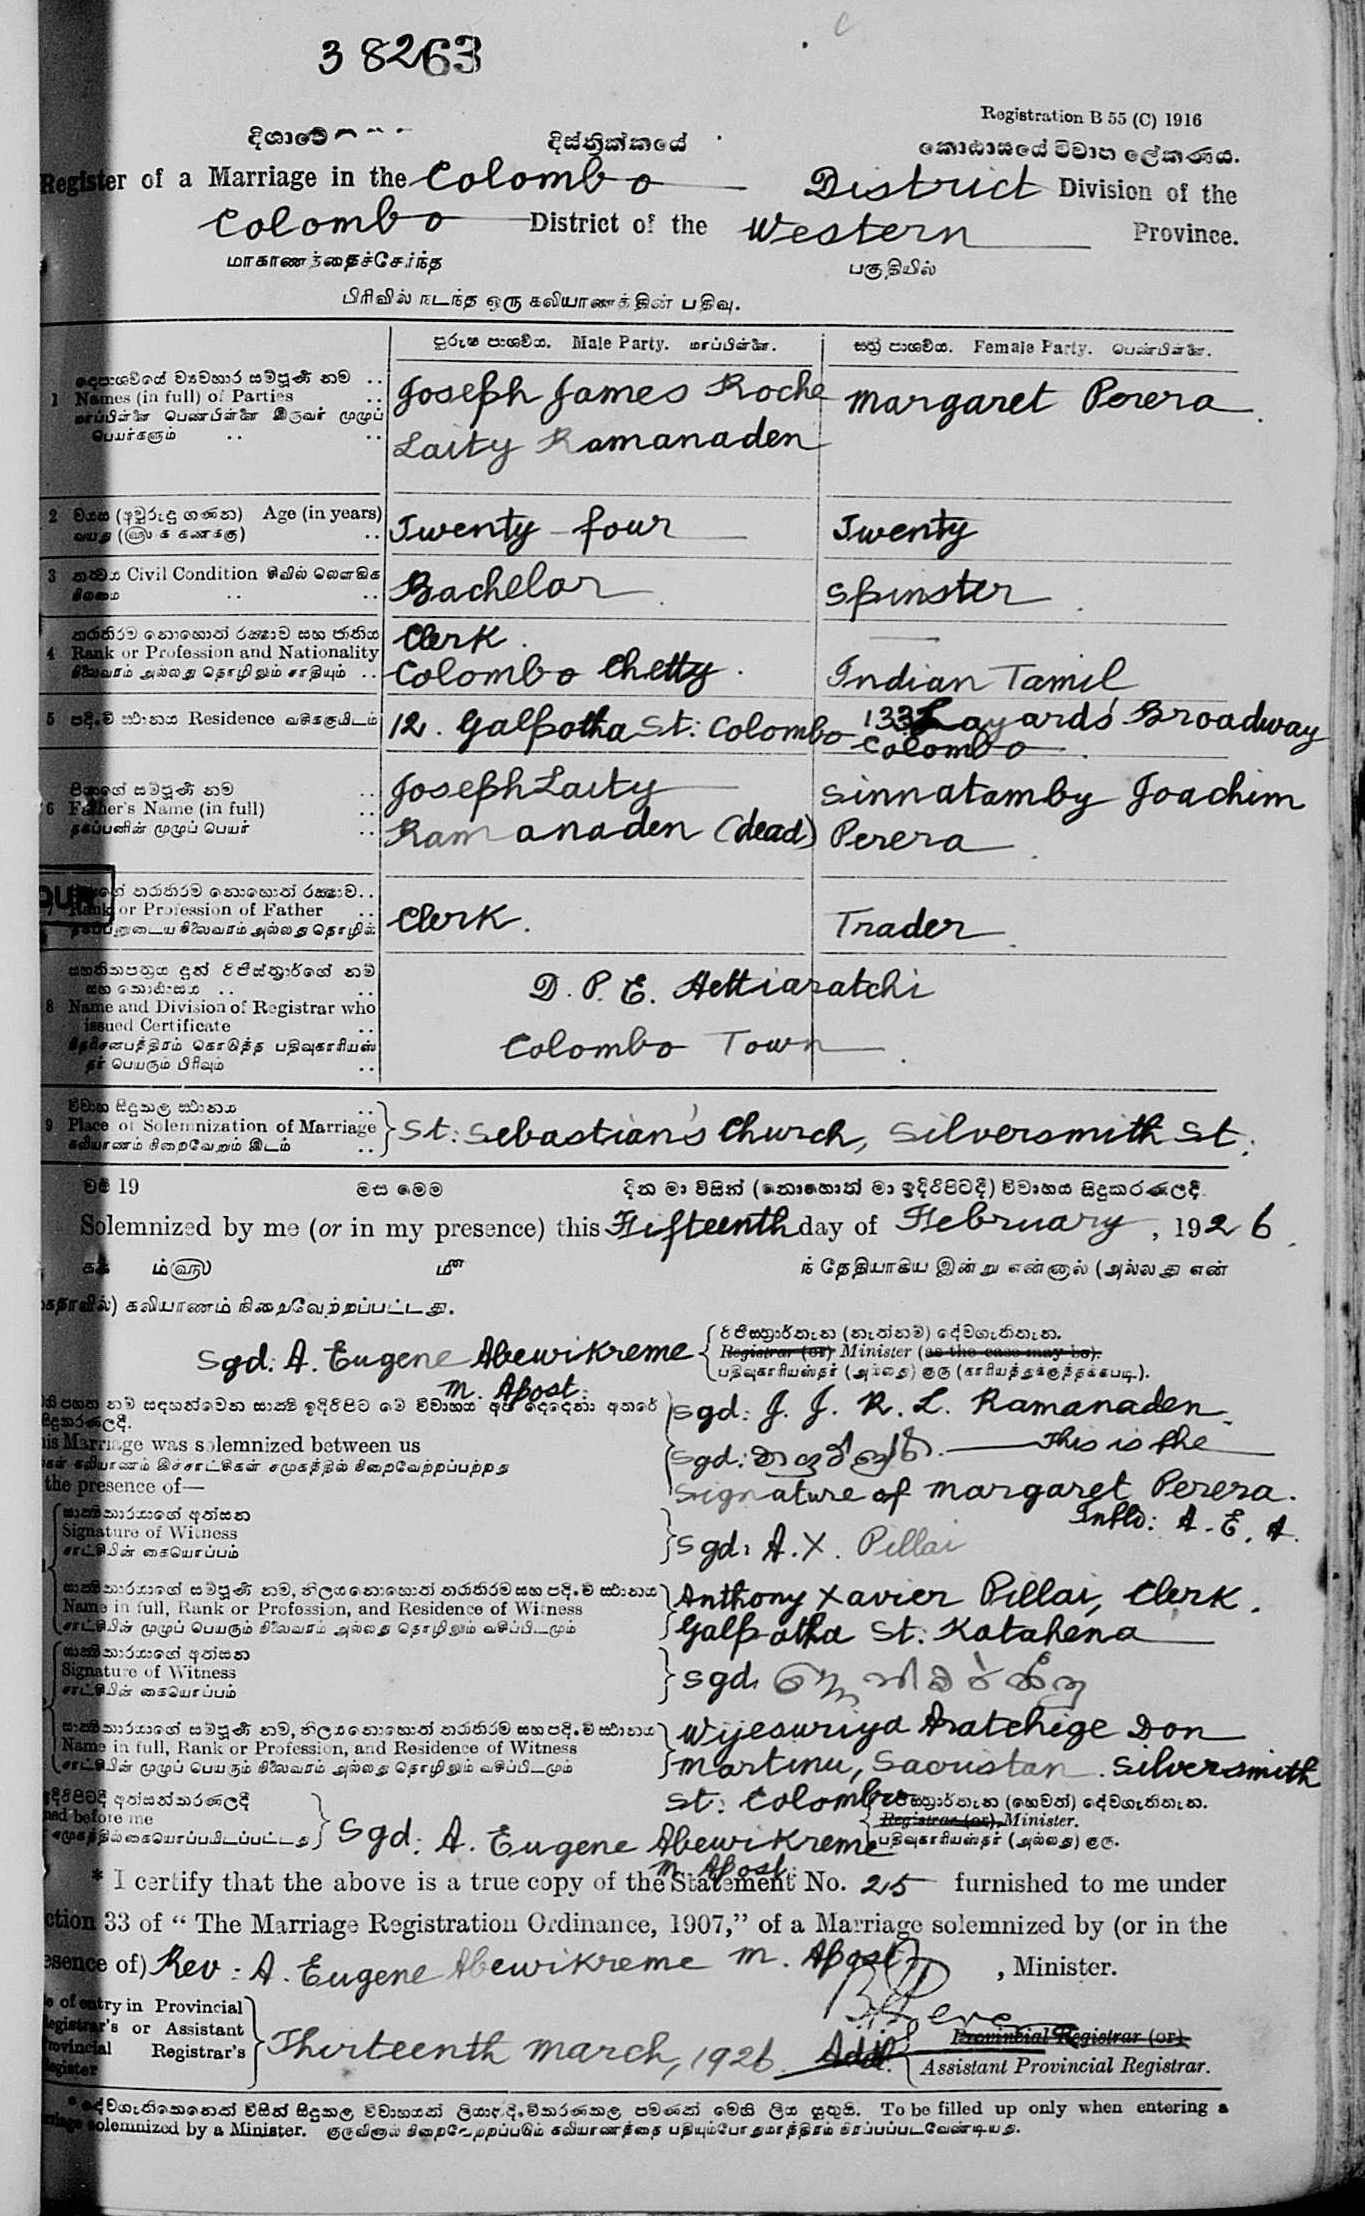 38263
Registration B 55 (C) 1916
දිසාවේ දිස්ත්‍රික්කයේ කොඨාසයේ විවාහ ලේකණය.
Register of a Marriage in the Colombo District Division of the
Colombo District of the Western Province.
மாகாணத்தைச்சேர்ந்த பகுதியில்
பிரிவில் நடந்த ஒரு கலியாணத்தின் பதிவு.
පුරුෂ පාශවීය. Male Party. மாப்பிள்ளை. ස්ත්‍රී පාශවීය. Female Party. பெண்பிள்ளை.
1 Names (in full) of Parties
மாப்பிள்ளை பெண்பிள்ளை இருவர் முழுப்
பெயர்களும்
Joseph James Roche
Laity Ramanaden
Margaret Perera
2 වයස (අවුරුදු ගණන) Age (in years)
Twenty-four Twenty
3 Civil Condition
Bachelor Spinster
4 Rank or Profession and Nationality
நிலைவரம் அல்லது தொழிலும் சாதியும்
Clerk
Colombo Chetty. Indian Tamil
5 පදිංචි ස්ථානය Residence வசிக்குமிடம்
12. Galpotha St: Colombo 133 Layards' Broadway
Colombo
පියාගේ සම්පූර්ණ නම
6 Father's Name (in full)
தகப்பனின் முழுப் பெயர்
Joseph Laity
Ramanaden (dead)
Sinnatamby Joachim
Perera
7 Rank or Profession of Father
தகப்பனுடைய நிலைவரம் அல்லது தொழில்
Clerk. Trader
8 Name and Division of Registrar who
issued Certificate
D. P. E. Hettiaratchi
Colombo Town
විවාහ සිදුකල ස්ථානය
9 Place of Solemnization of Marriage
கலியாணம் நிறைவேறும் இடம்
St: Sebastian's Church, Silversmith St.
වර්ෂ 19 මස මෙම දින මා විසින් (නොහොත් මා ඉදිරිපිටදී) විවාහය සිදුකරණලදී.
Solemnized by me (or in my presence) this Fifteenth day of February, 1926.
ந் தேதியாகிய இன்று என்னால் (அல்லது என்
கலியாணம் நிறைவேற்றப்பட்டது.
Sgd: A. Eugene Abewikreme
M. Apost:
Registrar (or) Minister (as the case may be).
பதிவுகாரியஸ்தர் (அல்லது) குரு (காரியத்துக்குத்தக்கபடி.).
his Marriage was solemnized between us
the presence of—
Sgd: J. J. R. L. Ramanaden
Sgd: This is the
signature of Margaret Perera.
Intld: A. E. A.
සාක්ෂිකාරයාගේ අත්සන
Signature of Witness
சாட்சியின் கையொப்பம்
Sgd: A. X. Pillai
Name in full, Rank or Profession, and Residence of Witness
சாட்சியின் முழுப் பெயரும் நிலைவரம் அல்லது தொழிலும் வசிப்பிடமும்
Anthony Xavier Pillai, Clerk.
Galpotha St: Kotahena
සාක්ෂිකාරයාගේ අත්සන
Signature of Witness
சாட்சியின் கையொப்பம்
Sgd.
Name in full, Rank or Profession, and Residence of Witness
சாட்சியின் முழுப் பெயரும் நிலைவரம் அல்லது தொழிலும் வசிப்பிடமும்
Wijesuriya Aratchige Don
Martinu, Sacristan. Silversmith
St: Colombo
ned before me
Sgd: A. Eugene Abewikreme
M. Apost:
Registrar (or) Minister.
பதிவுகாரியஸ்தர் (அல்லது) குரு.
* I certify that the above is a true copy of the Statement No. 25 furnished to me under
ction 33 of "The Marriage Registration Ordinance, 1907," of a Marriage solemnized by (or in the
esence of) Rev: A. Eugene Abewikreme M. Apost: , Minister.
e of entry in Provincial
Registrar's or Assistant
Provincial Registrar's
Register
Thirteenth March, 1926.
Addl.
Provincial Registrar (or)
Assistant Provincial Registrar.
To be filled up only when entering a
rriage solemnized by a Minister. குருவினால் நிறைவேற்றப்படும் கலியாணத்தை பதியும்போதுமாத்திரம் நிரப்பப்படவேண்டியது.